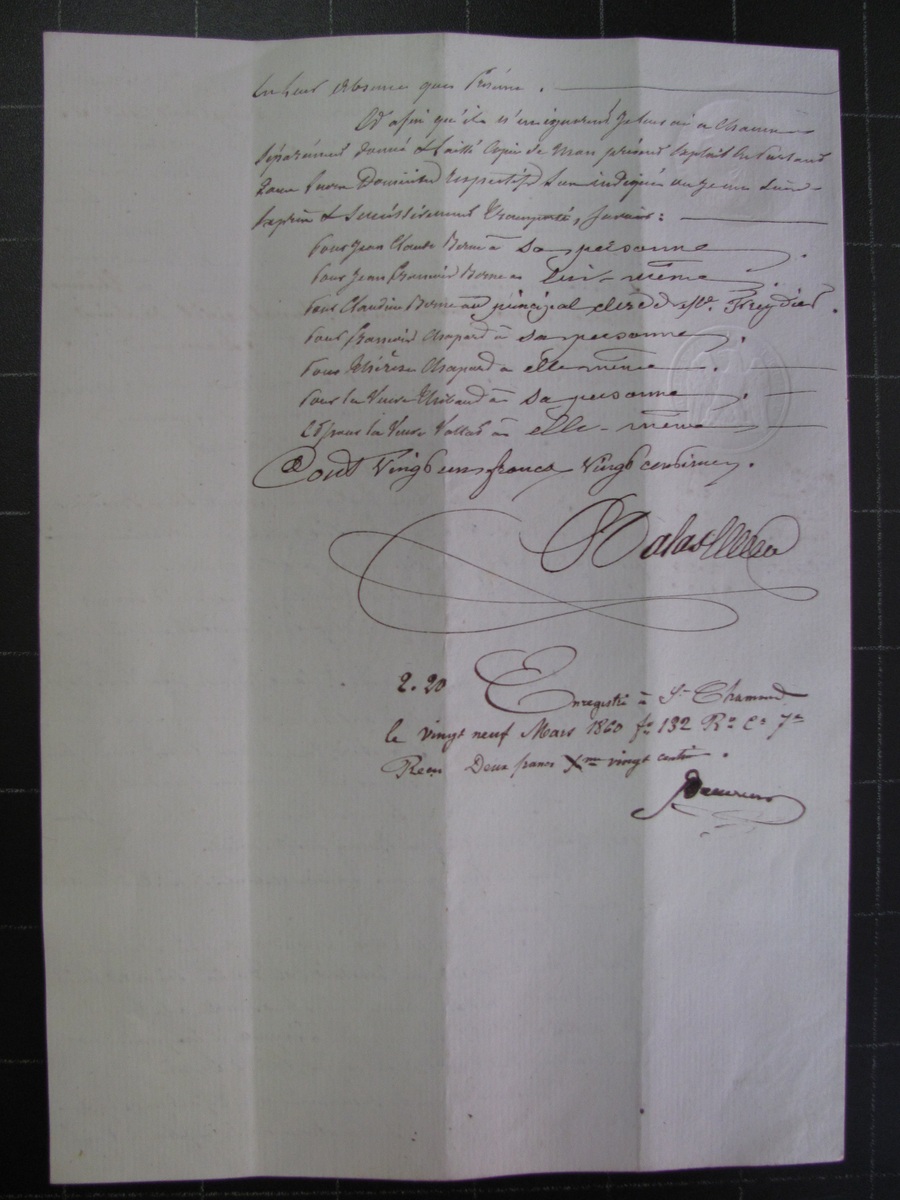 en leur absence que présence.
Et afin qu'ils n'en ignorent je leur ai à chacun
séparément donné et laissé copie de mon présent exploit en parlant
dans leurs Domiciles respectifs sus indiqués où je me suis
exprès et successivement transporté, savoir :
Pour Jean Claude Berne à sa personne.
Pour Jean François Berne à lui-même.
Pour Claudine Berne au principal clerc de Me.
Pour François Chapard à sa personne.
Pour Thérèse Chapard à elle même.
Pour la Veuve à sa personne
Et pour la Veuve à elle-même
Cout Vingt un francs Vingt centimes.
2.20 Enregistré à St Chamond
le vingt neuf Mars 1860 fo 132 Ro Ce 7
Reçu Deux francs Xme vingt centes.